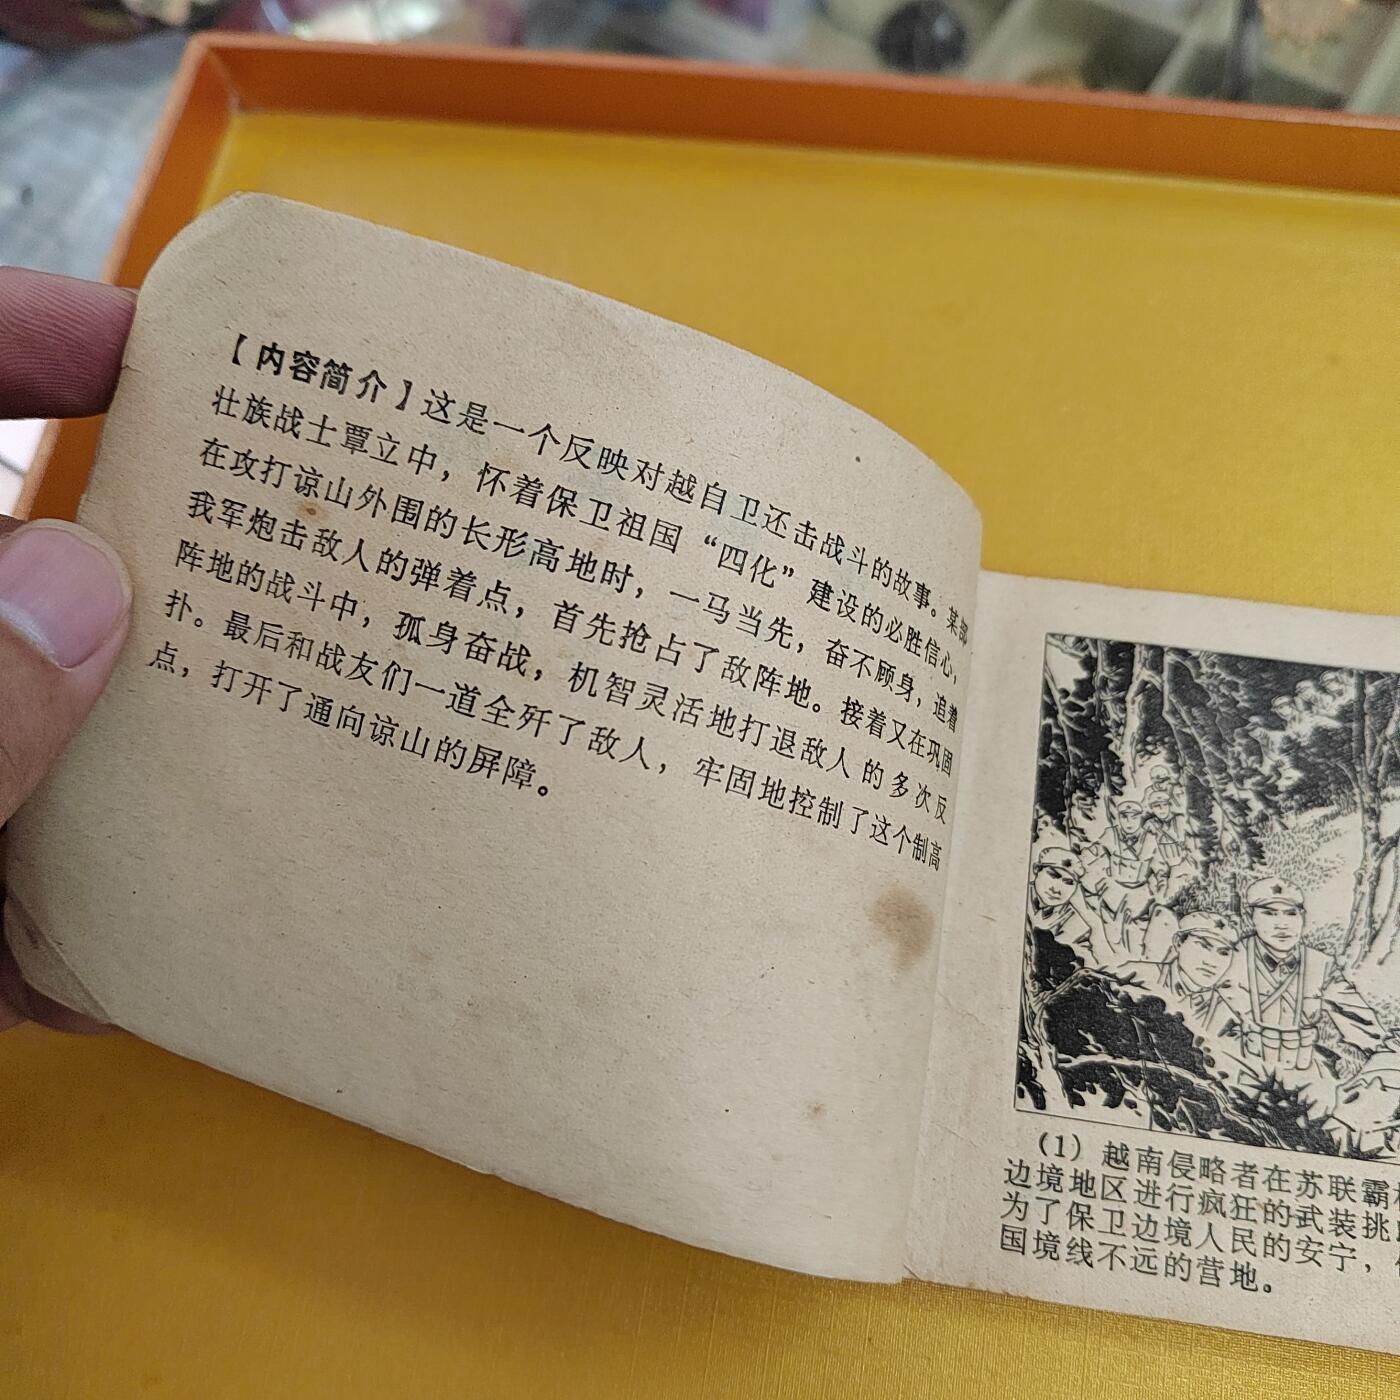 【内容简介】这是一个反映对越自卫还击战斗的故事。某部
壮族战士覃立中，怀着保卫祖国“四化”建设的必胜信心，
在攻打谅山外围的长形高地时，一马当先，奋不顾身，追着
我军炮击敌人的弹着点，首先抢占了敌阵地。接着又在巩固
阵地的战斗中，孤身奋战，机智灵活地打退敌人的多次反
扑。最后和战友们一道全歼了敌人，牢固地控制了这个制高
点，打开了通向谅山的屏障。
(1) 越南侵略者在苏联霸
边境地区进行疯狂的武装挑
为了保卫边境人民的安宁，
国境线不远的营地。